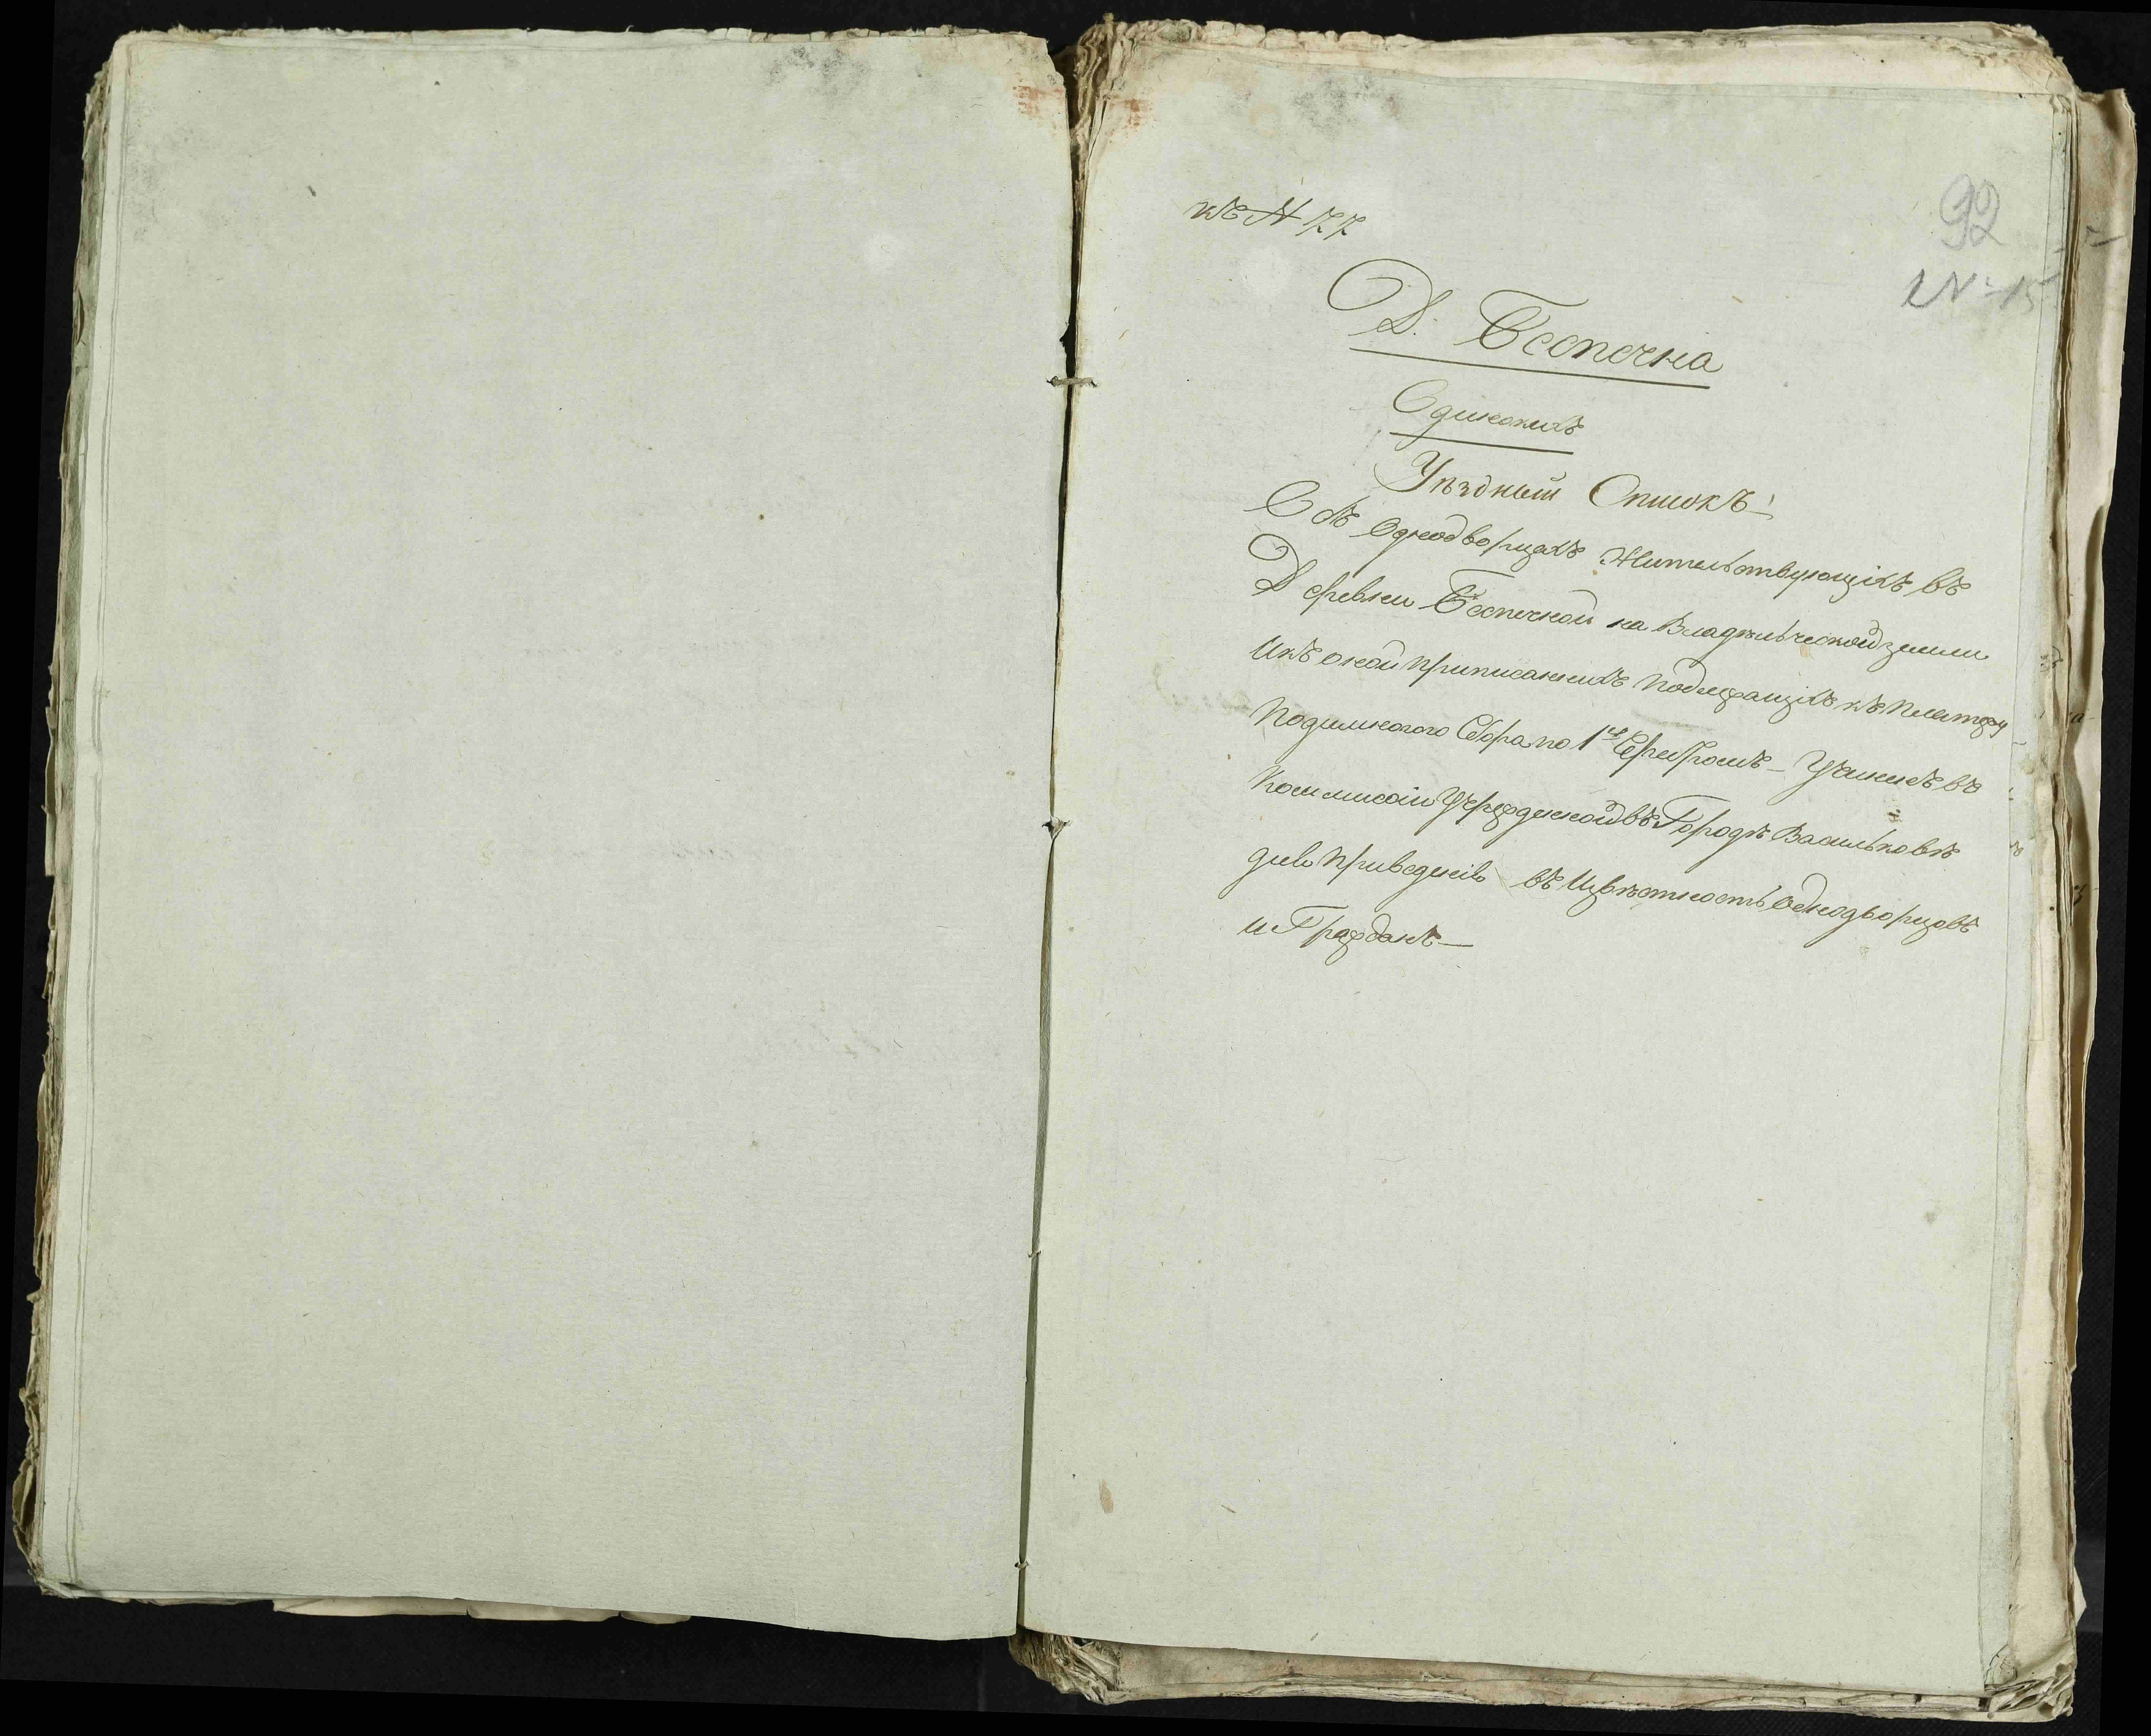 къ N 77
92
№ 15
Д. Беспечна
Одинокихъ
Уѣздный Списокъ
Объ Однодворцахъ Жительствующихъ въ
Деревни Беспечной на Владѣльческой земли
и къ оной приписанныхъ подлежащихъ къ платежу
Подимного Сбора по 1 Сребромъ –
Коммисіи Учрежденной въ Городѣ Васильковѣ
для приведенія въ Извѣстность Однодворцовъ
и Граждан –